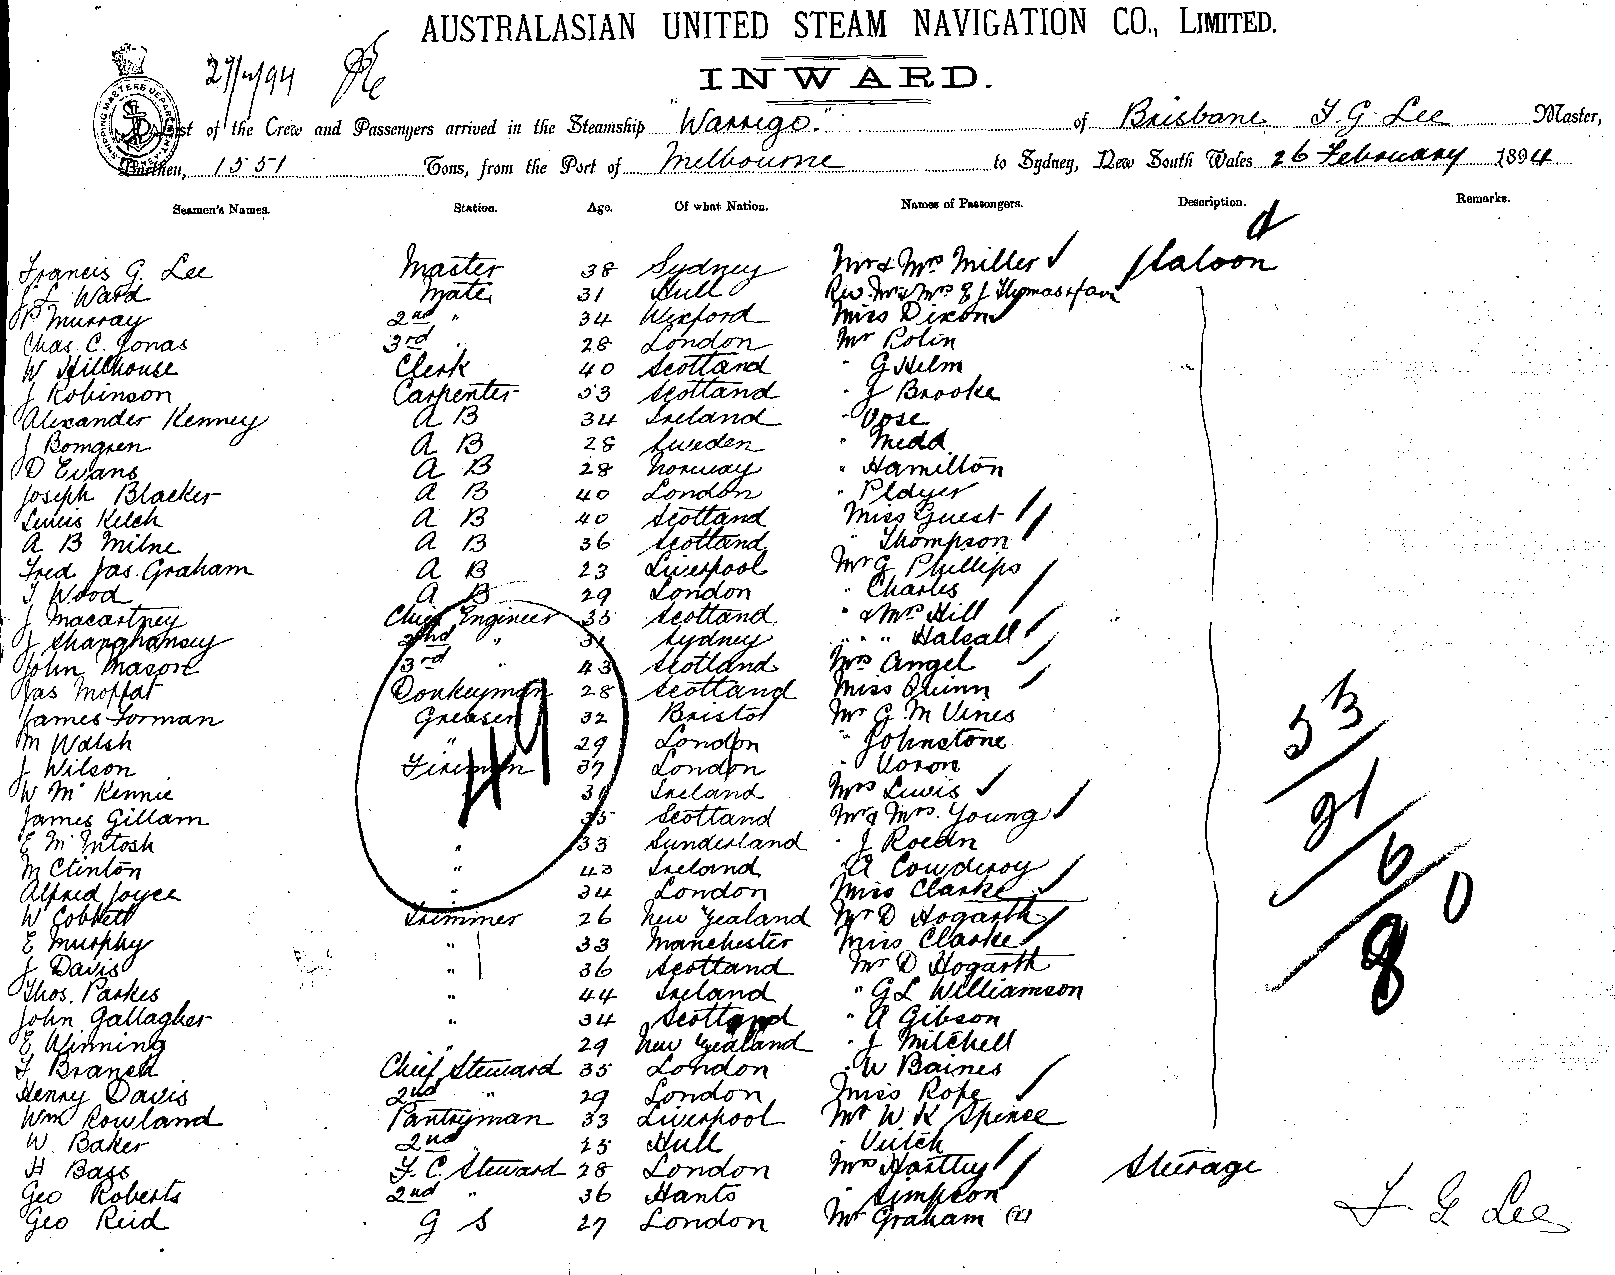 AUSTRALASIAN UNITED STEAM NAVIGATION CO., LIMITED.
INWARD.
List of the Crew and Passengers arrived in the Steamship "Warrego." of Brisbane F. G. Lee Master,
Burthen, 1551 Tons, from the Port of Melbourne to Sydney, New South Wales 26 February 1894
Seamen's Names. Station. Age. Of what Nation. Names of Passengers. Description. Remarks.
Francis G. Lee Master 38 Sydney Mr & Mrs Miller Saloon
Ward Mate 31 Hull Rev. Mr & Mrs E J Thomas & fam
P Murray 2nd " 34 Wexford Miss Dixon
Chas. C. Jonas 3rd " 28 London Mr Polin
W Hillhouse Clerk 40 Scotland " G Helm
J Robinson Carpenter 53 Scotland " J Brooke
Alexander Kenney A B 34 Ireland " Vose
J Bomgren A B 28 Sweden " Medd
D Evans A B 28 Norway " Hamilton
Joseph Blacker A B 40 London " Pldyer
Lewis Kelch A B 40 Scotland Miss Guest
A B Milne A B 36 Scotland " Thompson
Fred Jas. Graham A B 23 Liverpool Mr G Phillips
T Wood A B 29 London " Charles
J Macartney Chief Engineer 35 Scotland " & Mrs Hill
J Shanghansey 2nd " 31 Sydney " " " Halsall
John Mason 3rd " 43 Scotland Mrs Angel
Jas Moffat Donkeyman 28 Scotland Miss Quinn
James Forman Greaser 32 Bristol Mr G. M Vines
M Walsh " 29 London " Johnstone
J Wilson Fireman 37 London " Voron
W McKennie Ireland Mrs Lewis
James Gillam 35 Scotland Mr & Mrs. Young
E McIntosh " 33 Sunderland " J Roedn
M Clinton " 43 Ireland " A Cowderoy
Alfred Joyce " 34 London Miss Clarke
W Cobbett Trimmer 26 New Zealand Mr D Hogarth
E Murphy " 33 Manchester Miss Clarke
J Davis " 36 Scotland Mr D Hogarth
Thos. Parkes " 44 Ireland " G L Williamson
John Gallagher " 34 Scotland " A Gibson
E Winning " 29 New Zealand " J Mitchell
F Branch Chief Steward 35 London " W Baines
Henry Davis 2nd " 29 London Miss Rope
Wm Rowland Pantryman 33 Liverpool Mr W K Spence
W. Baker 2nd " 25 Hull " Veitch
H Bass F. C. Steward 28 London Mrs Hartley Steerage
Geo Roberts 2nd " 36 Hants " Simpson
Geo Reid G S 27 London Mr Graham (2)
49
53
21
6
80
F G Lee